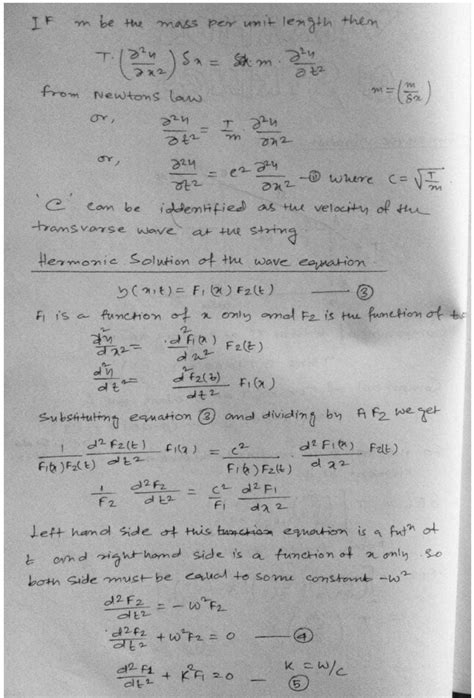 If m be the mass per unit length then
T. (∂²y/∂x²) δx = δx m . ∂²y/∂t²
from Newtons law m = (m/δx)
or, ∂²y/∂t² = T/m . ∂²y/∂x²
or, ∂²y/∂t² = c² ∂²y/∂x² — ② where C = √(T/m)
'C' can be iddentified as the velocity of the
transvarse wave at the string
Hermonic Solution of the wave equation
y(x,t) = F₁(x) F₂(t) — ③
F₁ is a function of x only and F₂ is the function of
d²y/dx² = . d²F₁(x)/dx² F₂(t)
d²y/dt² = d²F₂(t)/dt² F₁(x)
Substituting equation ③ and dividing by F₁ F₂ we get
1/F₁(x)F₂(t) d²F₂(t)/dt² F₁(x) = c²/F₁(x)F₂(t) . d²F₁(x)/dx² F₂(t)
1/F₂ d²F₂/dt² = c²/F₁ d²F₁/dx²
Left hand side of this equation is a funⁿ of
t and right hand side is a function of x only. so
both side must be equal to some constant -w²
d²F₂/dt² = - w²F₂
d²F₂/dt² + w²F₂ = 0 — ④
d²F₁/dt² + K²F₁ = 0 — ⑤ K = w/c